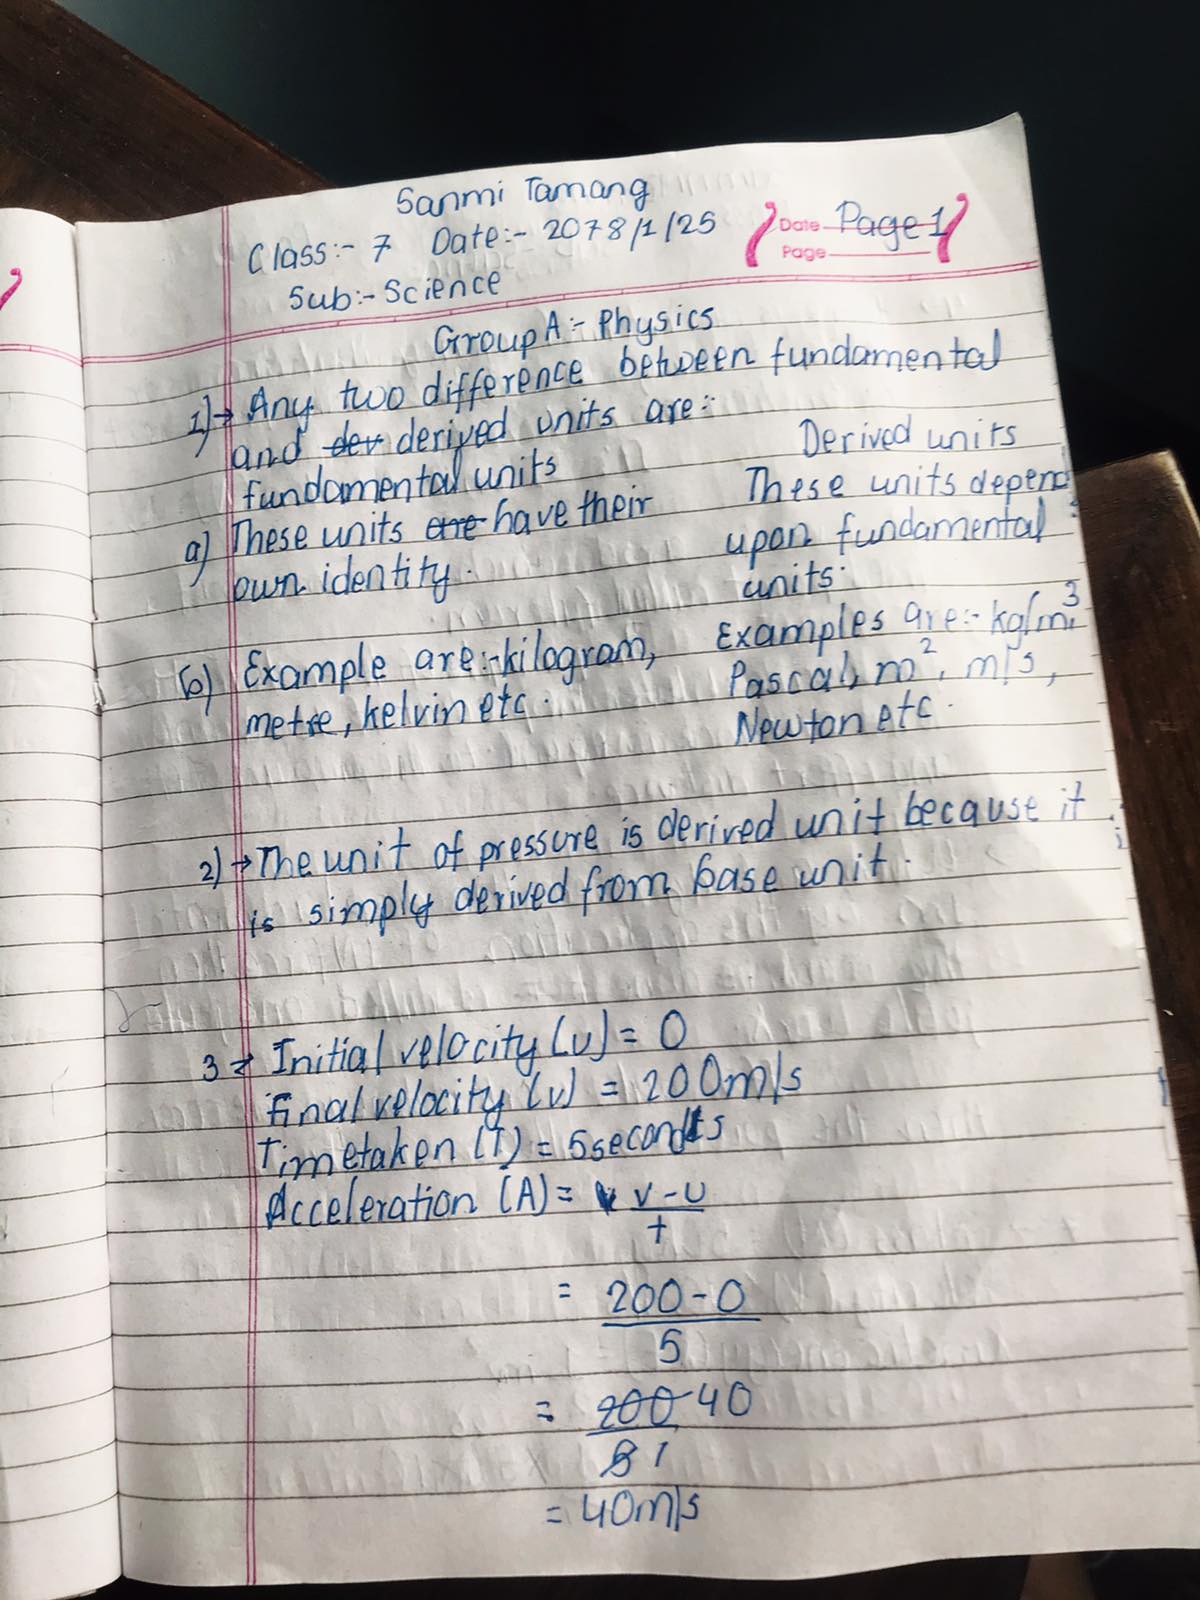 Sanmi Tamang
Class:- 7 Date:- 2078/1/25
Date Page 1
Page
Sub:- Science
Group A :- Physics
1)→ Any two difference between fundamental
and der derived units are:-
fundamental units Derived units
a) These units are have their These units depend
own identity. upon fundamental
units.
b) Example are:- kilogram, Examples are:- kg/m³,
metre, kelvin etc. Pascal, m², m/s,
Newton etc.
2)→ The unit of pressure is derived unit because it
is simply derived from base unit.
3→ Initial velocity (u) = 0
Final velocity (v) = 200m/s
Time taken (T) = 5 seconds
Acceleration (A) = v-u
t
= 200-0
5
= 200 40
5 1
= 40m/s